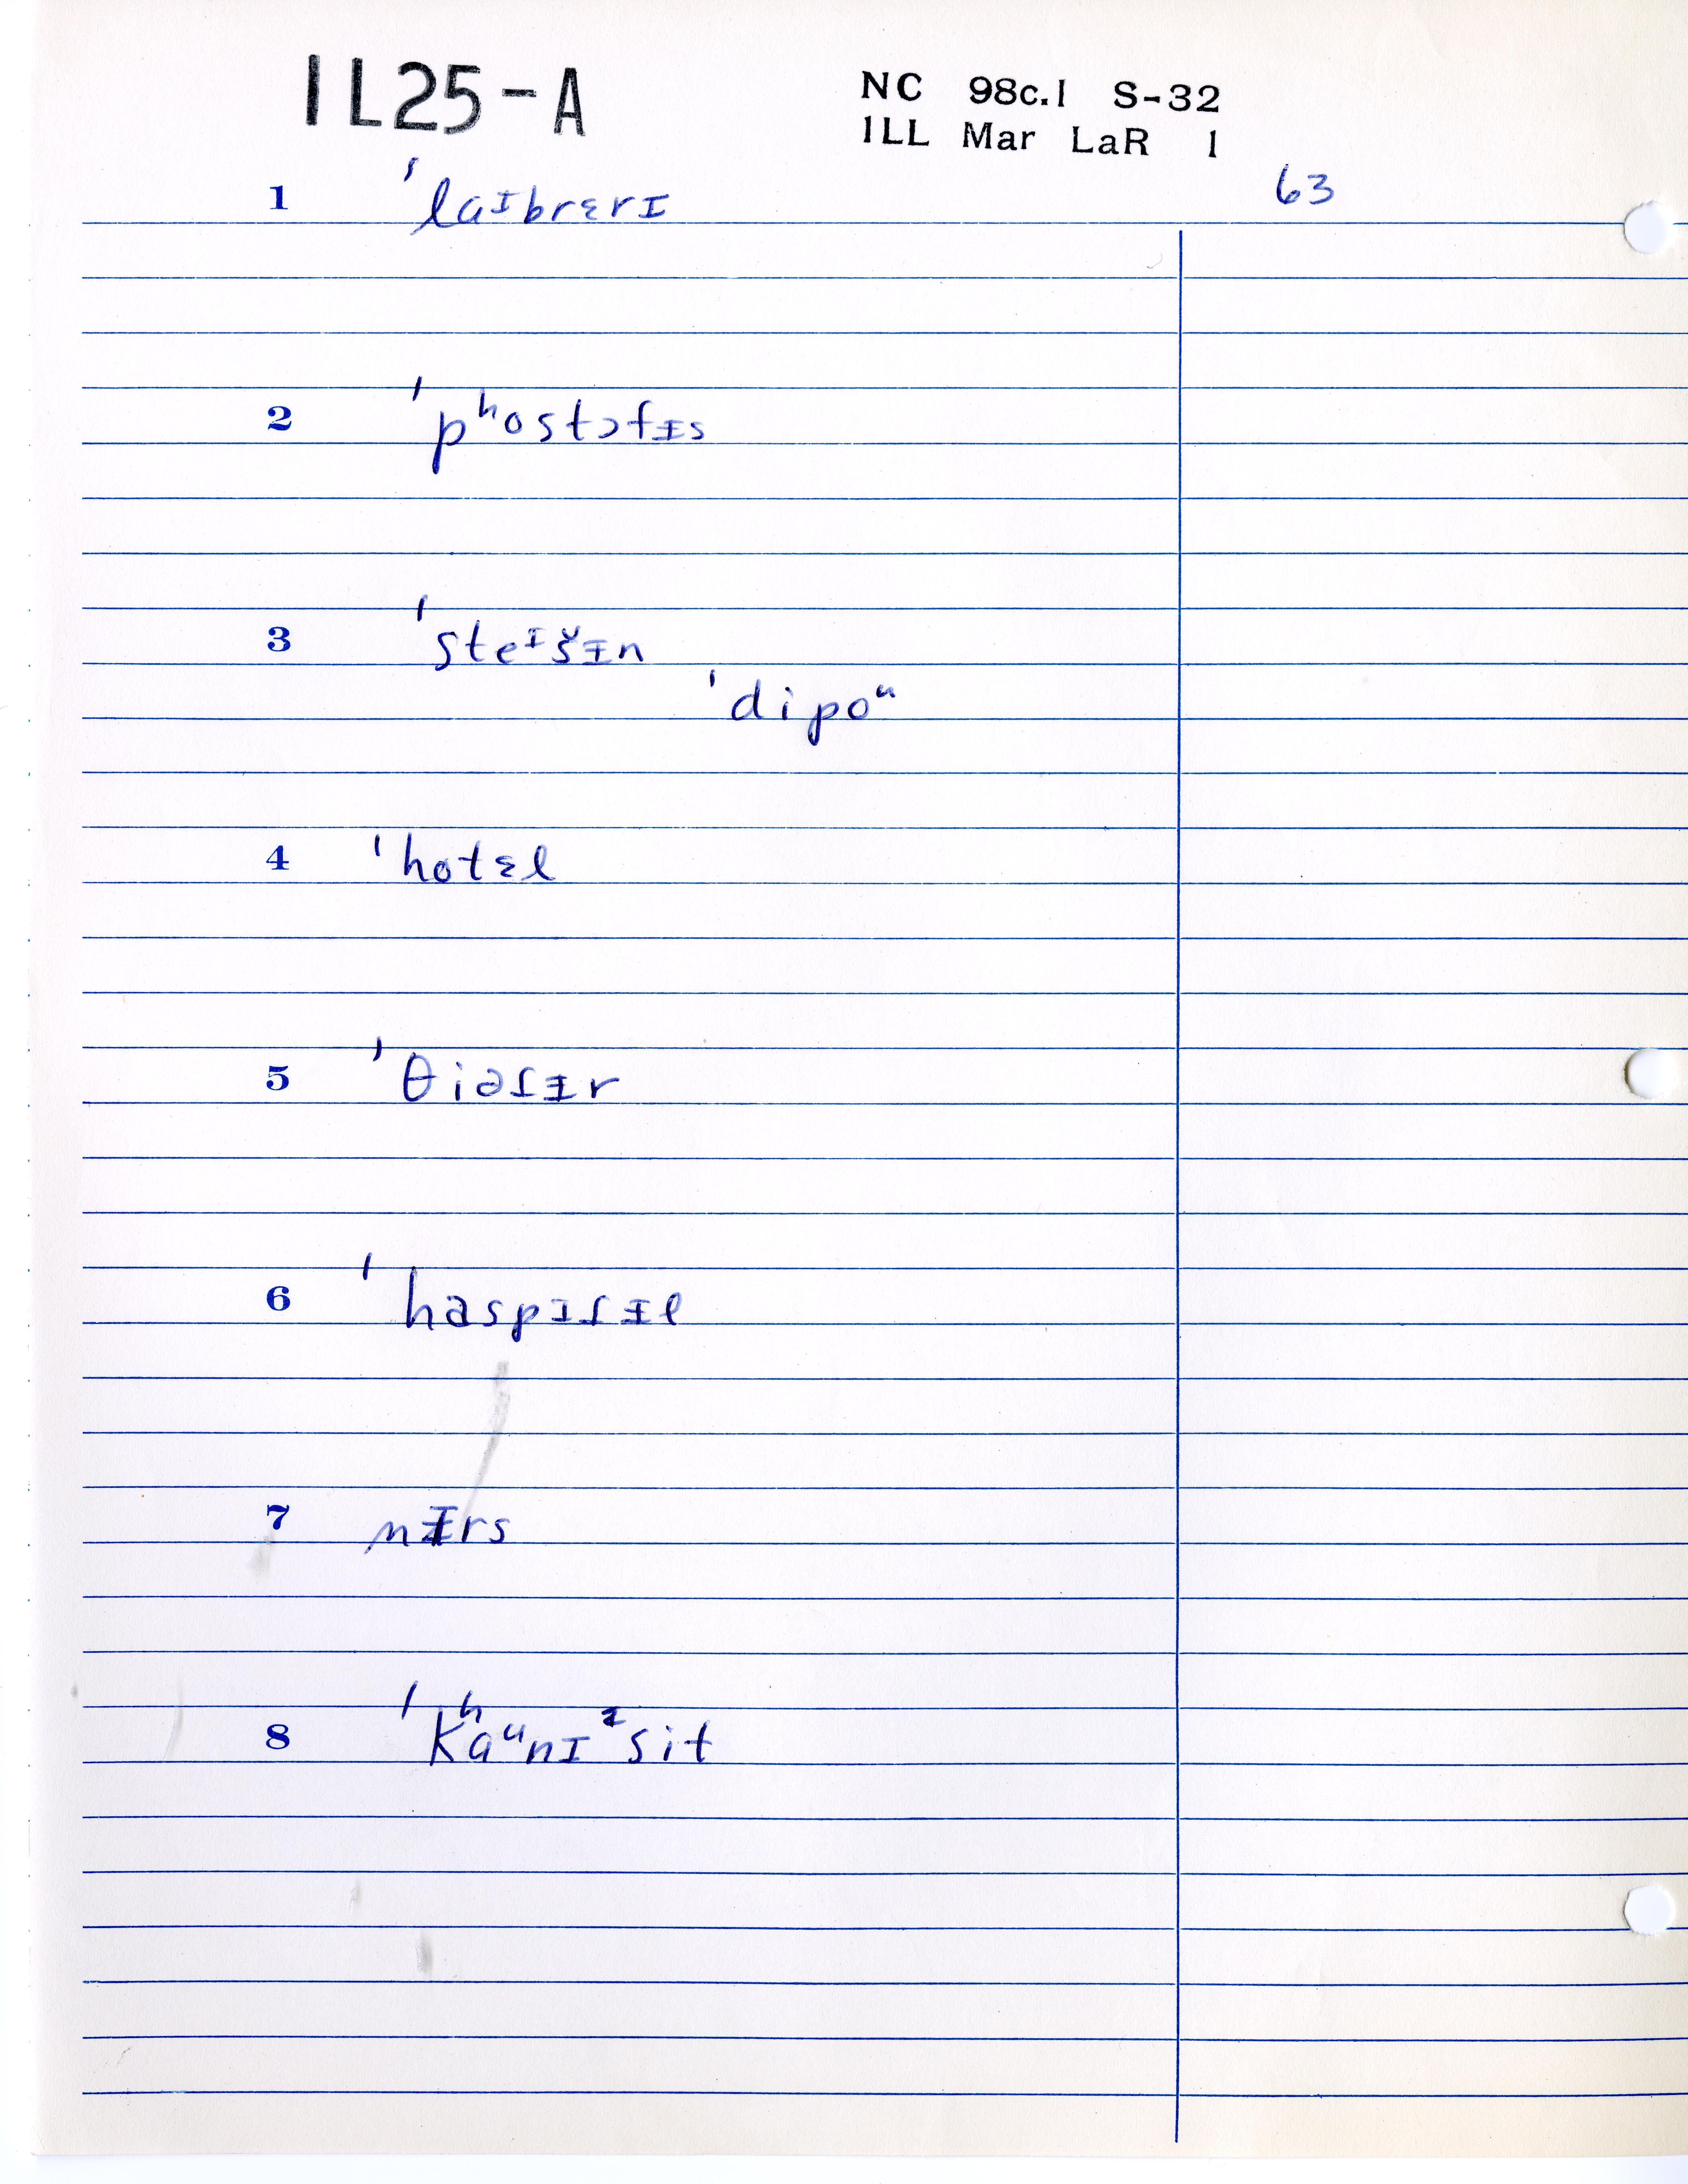 IL25-A
NC 98c.1 S-32
ILL Mar LaR 1
63
1 ˈlaᶦbrɛrɪ
2 ˈpʰostɔfᵻs
3 ˈsteᶦšᵻn
ˈdipoᵘ
4 ˈhotɛl
5 ˈθiəɾᵻr
6 ˈhaspɪɾᵻl
7 nᵻrs
8 ˈkʰaᵘnɪ ᶻsit